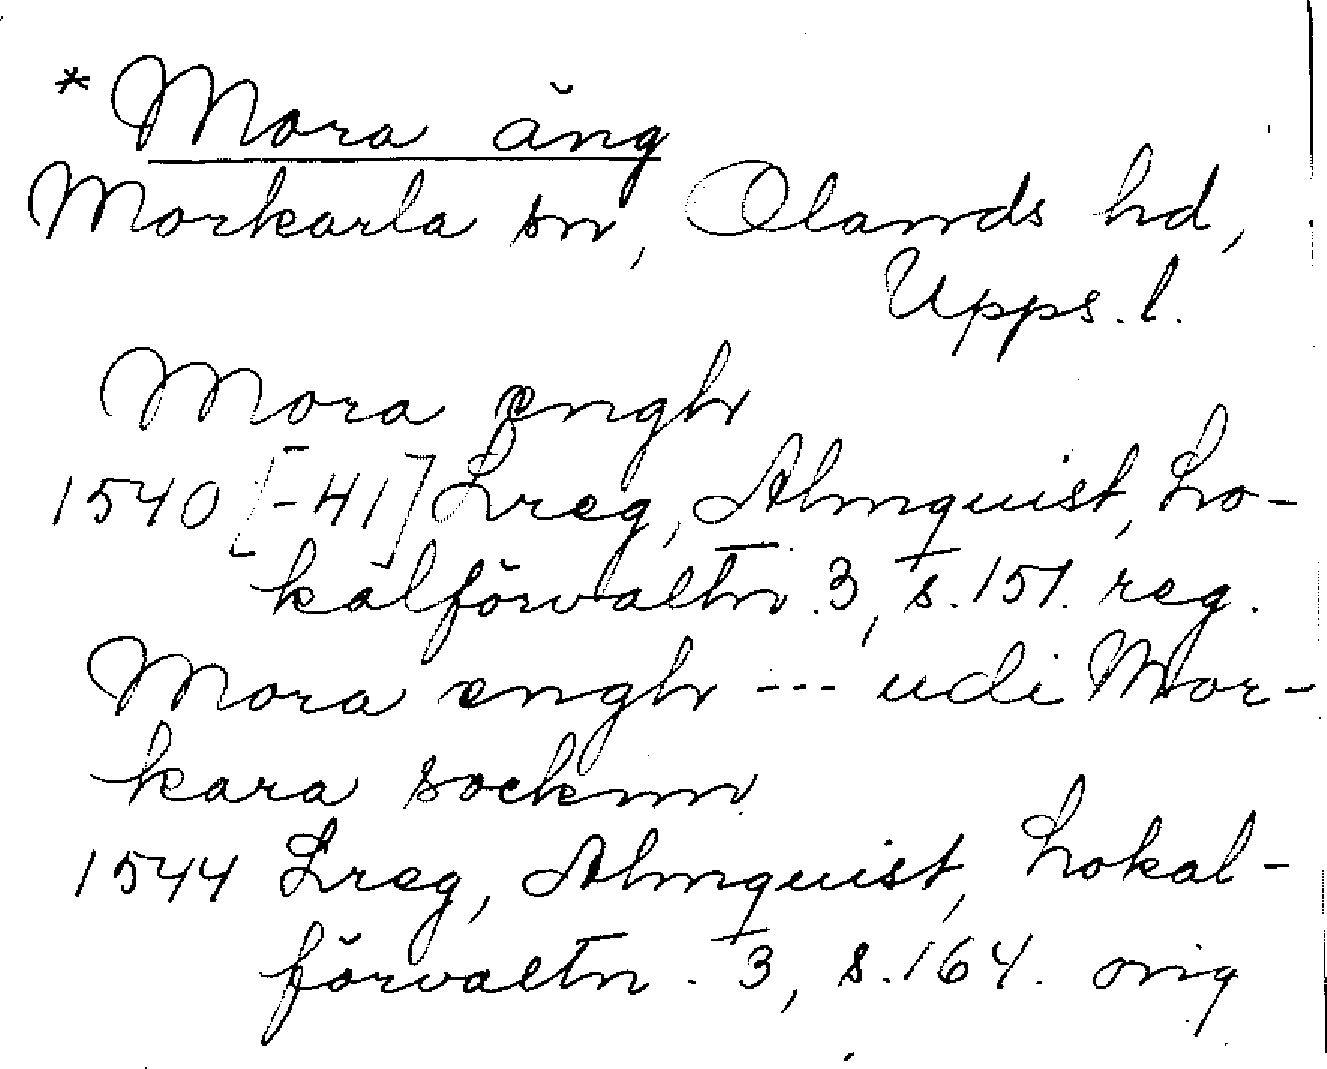 * Mora äng
Morkarla sn, Olands hd,
Upps. l.
Mora engh
1540 [-41] Lreg, Almquist, Lo-
kalförvaltn. 3, s. 151. reg.
Mora engh --- udi Mor-
kara socknn
1544 Lreg, Almquist, Lokal-
förvaltn. 3, s. 164. orig